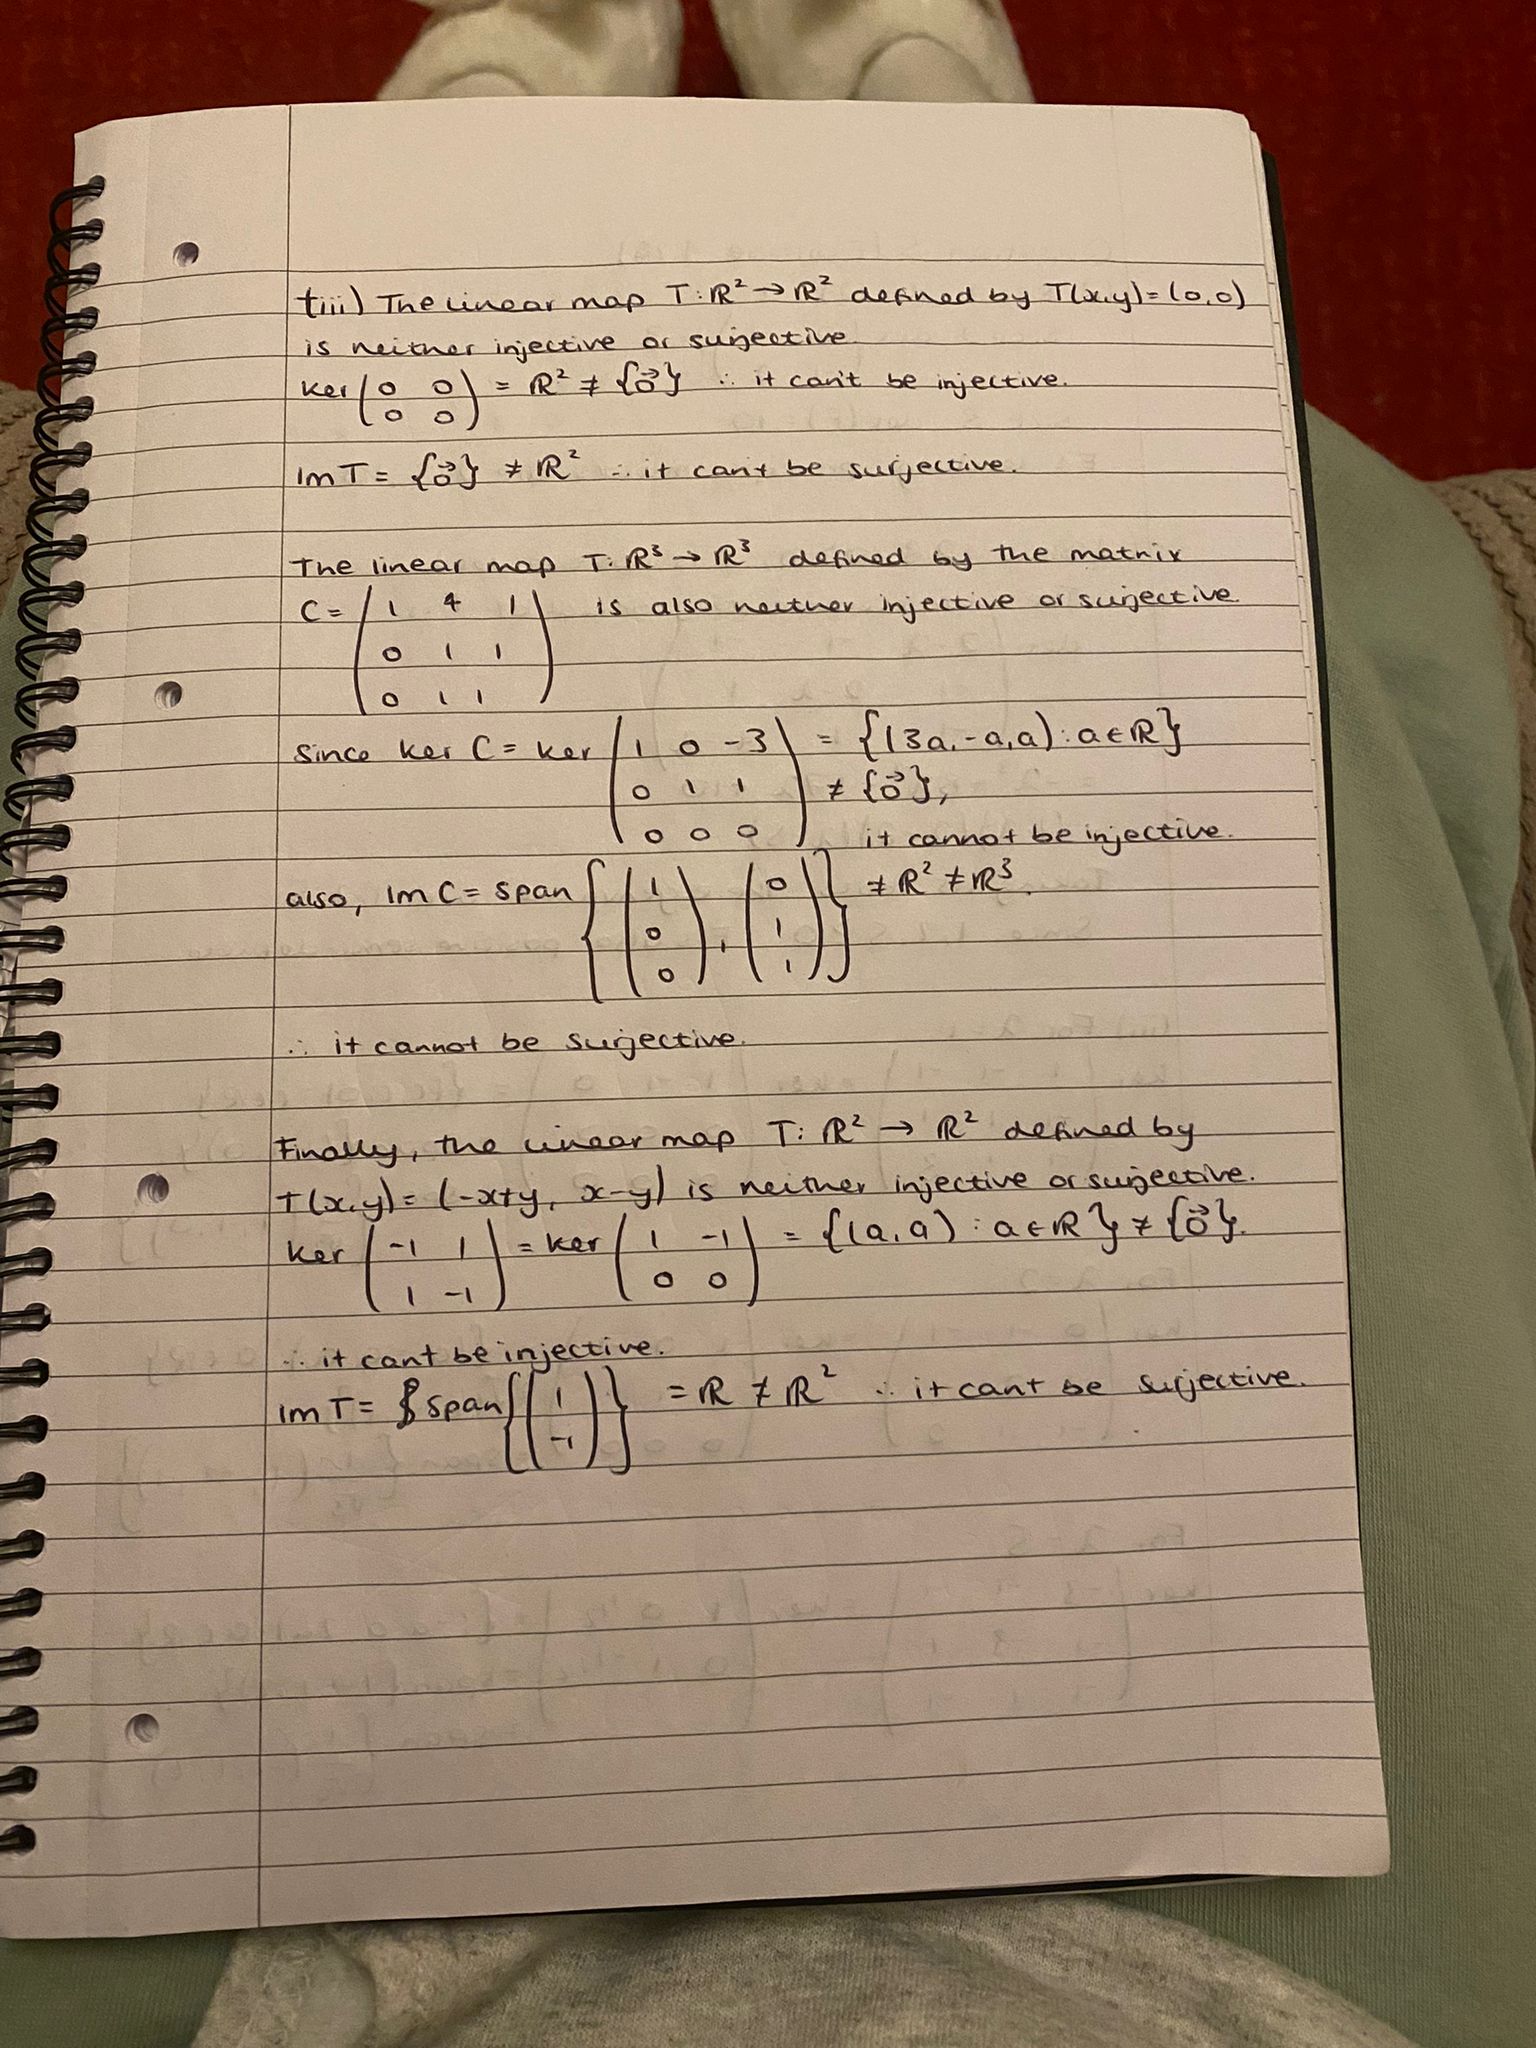 tiii) The linear map T: ℝ² → ℝ² defined by T(x,y) = (0,0)
is neither injective or surjective.
ker ( 0 0 ) = ℝ² ≠ {0⃗} ∴ it can't be injective.
0 0
Im T = {0⃗} ≠ ℝ² ∴ it can't be surjective.
The linear map T: ℝ³ → ℝ³ defined by the matrix
C = ( 1 4 1 ) is also neither injective or surjective.
0 1 1
0 1 1
Since ker C = ker ( 1 0 -3 ) = {(3a, -a, a) : a ∈ ℝ}
0 1 1 ≠ {0⃗},
0 0 0 it cannot be injective.
also, Im C = span { ( 1 ) , ( 0 ) } ≠ ℝ² ≠ ℝ³.
0 1
0 1
∴ it cannot be surjective.
Finally, the linear map T: ℝ² → ℝ² defined by
T(x,y) = (-x+y, x-y) is neither injective or surjective.
ker ( -1 1 ) = ker ( 1 -1 ) = {(a, a) : a ∈ ℝ} ≠ {0⃗}.
1 -1 0 0
∴ it cant be injective.
Im T = span { ( 1 ) } = ℝ ≠ ℝ² ∴ it cant be surjective.
-1